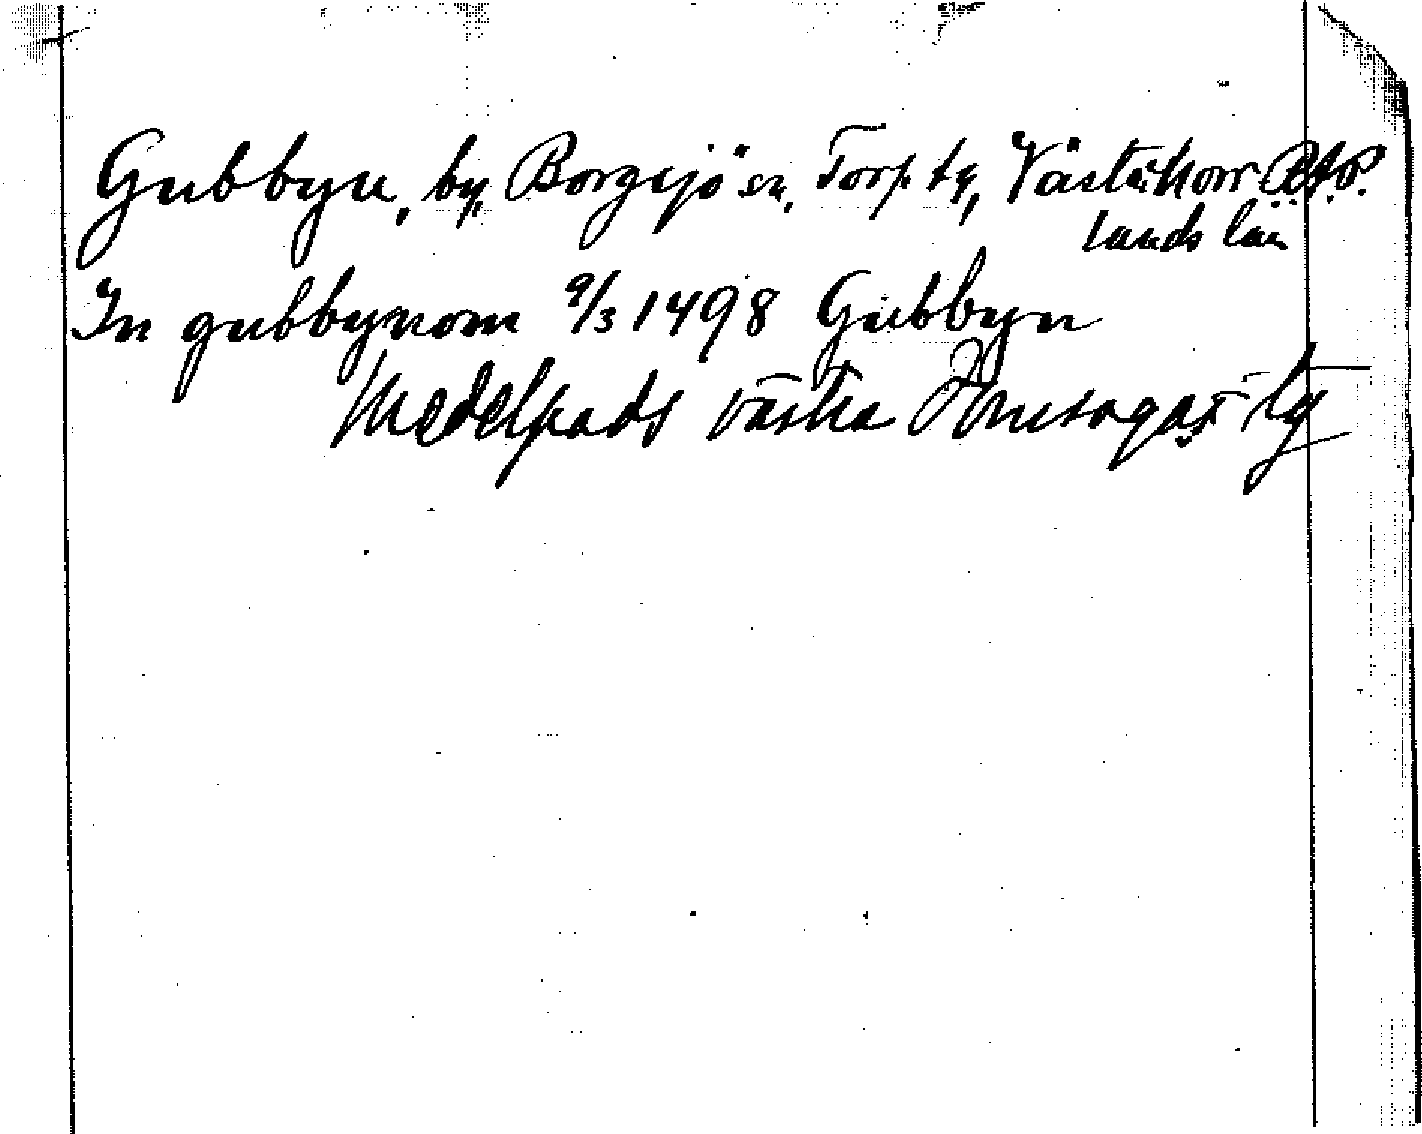 Gubbyn, by, Borgsjö sn, Torp tg, Västernorr
lands län
In gubbynom 9/3 1498 Gubbyn
Medelpads västra Domsaga tg